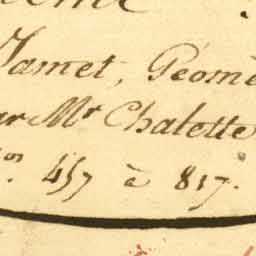 Jamet, Géomè
ar Mr Chalette
os. 457 à 817.